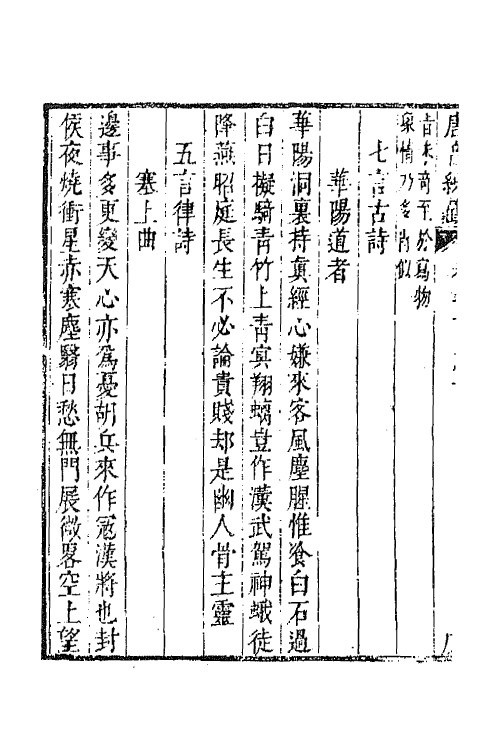 昔未奇至於寫物
衆情乃多肖似
七言古詩
華陽道者
華陽洞裏持真經心嫌來客風塵腥惟飡白石過
白日擬騎青竹上青㝠翔螭豈作漢武駕神蛾徒
降燕昭庭長生不必論貴賤却是幽人骨主靈
五言律詩
塞上曲
邊事多更變天心亦爲憂胡兵來作寇漢將也封
侯夜燒衝星赤寒塵翳日愁無門展微畧空上望